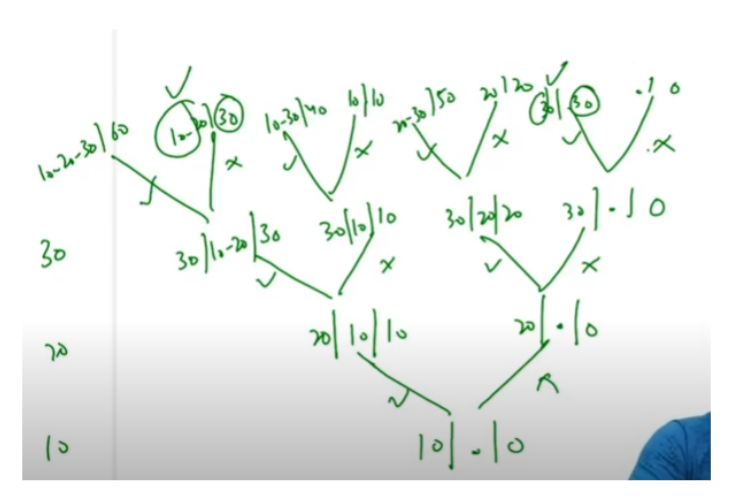 10-20-30|60 10-20|30 10-30|40 10|10 20-30|50 20|20 30|30 .|0
30 30|10-20|30 30|10|10 30|20|20 30|.|0
20 20|10|10 20|.|0
10 10|.|0